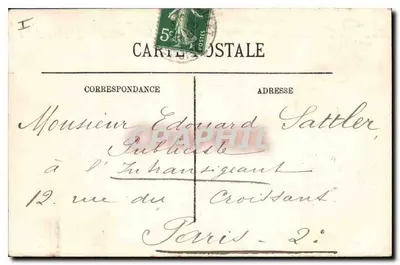 I
5c
POSTES
CARTE POSTALE
CORRESPONDANCE
ADRESSE
Monsieur Edouard Sattler,
Publiciste
à l'Intransigeant
12. rue du Croissant
Paris - 2e